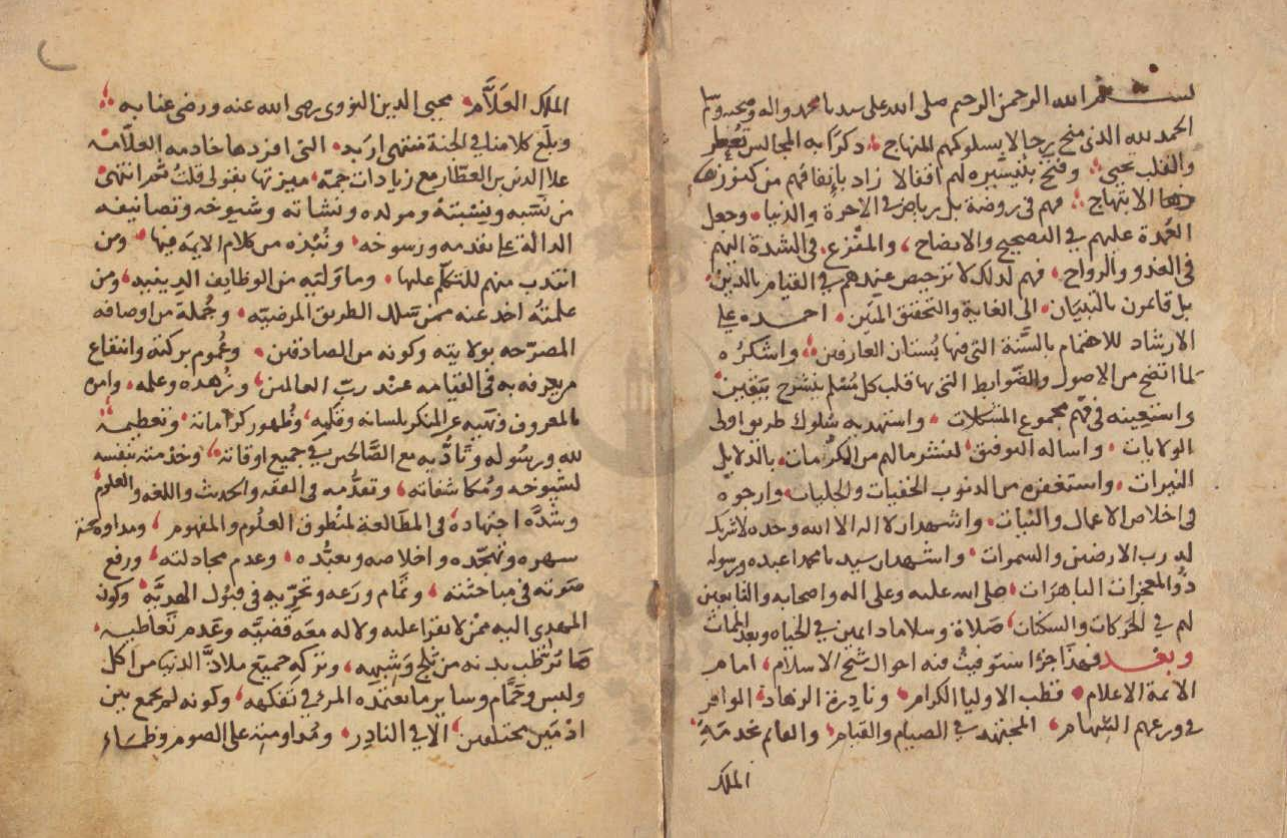 بسم الله الرحمن الرحيم صلى الله على سيدنا محمد واله وصحبه وسلم
الحمد لله الذى منح رجالا بسلوكهم المنهاج ذكرا به المجالس تعطر
والقلب يحيى وفتح بتيسيره لهم اقفالا زاد بإيفائهم من كنوزها
الابتهاج فهم فى روضة بل رياض فى الاخرة والدنيا وجعل
العمدة عليهم في التصحيح والايضاح والمفزع فى الشدة اليهم
فى الغدو والرواح فهم لذلك لا ترخيص عندهم في القيام بالدين
بل قائمون بالتبيان الى الغاية والتحقيق المتين احمده على
الارشاد للاهتمام بالسنة التى فيها بستان العارفين واشكره
لما اتضح من الاصول والضوابط التى بها قلب كل مسلم ينشرح بيقين
واستعينه فى فهم مجموع المشكلات واستهديه سلوك طريق اولى
الولايات واساله التوفيق لنشر مالهم من الكرمات بالدلايل
النيرات واستغفره من الذنوب الخفيات والجليات وارجوه
فى اخلاص الاعمال والنيات واشهد ان لا اله الا الله وحده لا شريك
له رب الارضين والسموات واشهد ان سيدنا محمدا عبده ورسوله
ذو المعجزات الباهرات صلى الله عليه وعلى اله واصحابه والتابعين
لهم في الحركات والسكنات صلاة وسلاما دايمين في الحياه وبعد الممات
وبعد فهذا جزا استوفيت فيه احوال شيخ الاسلام امام
الائمة الاعلام قطب الاوليا الكرام ونادرة الزهاد الوافر
في ورعهم السهام المجتهد في الصيام والقيام والقائم بخدمة
الملك
الملك العلام محيى الدين النووى رضى الله عنه ورضى عنا به
وبلغ كلا منا في الجنة منتهى اربه التى افردها خادمه العلامة
علاالدين بن العطار مع زيادات جمة ميزتها بقولى قلت ثم انتهى
من نسبه ونسبته ومولده ونشاته وشيوخه وتصانيفه
الدالة على تقدمه ورسوخه ونبذه من كلام الايمه فيها ومن
انتدب منهم للتكلم عليها وما وليه من الوظايف الدينيه ومن
علمته اخذ عنه ممن سلك الطريق المرضيه وجملة من اوصافه
المصرحه بولايته وكونه من الصادقين وعموم بركته وانتفاع
من يعرفه به فى القيامه عند رب العالمين وزهده وعلمه وامره
بالمعروف ونهيه عن المنكر بلسانه وقلبه وظهور كراماته وتعظيمه
لله ورسوله وتادبه مع الصالحين في جميع اوقاته وخدمته بنفسه
لشيوخه ومكاشفاته وتقدمه فى الفقه والحديث واللغه والعلوم
وشدة اجتهاده فى المطالعة لمنطوق العلوم والمفهوم ومداومة
سهره وتهجده واخلاصه وتعبده وعدم مجادلته ورفع
صوته فى مباحثته وتمام ورعه وتحريه فى قبول الهدية وكون
المهدى اليه ممن لا يقرا عليه ولا له معه قضيه وعدم تعاطيه
ما يرطب بدنه من ثلج وشبهه وتركه جميع ملاذ الدنيا من اكل
ولبس وحمام وساير ما يعتمده المرء في تفكهه وكونه لم يجمع بين
ادمين مختلفين الا في النادر ومداومته على الصوم وظماء